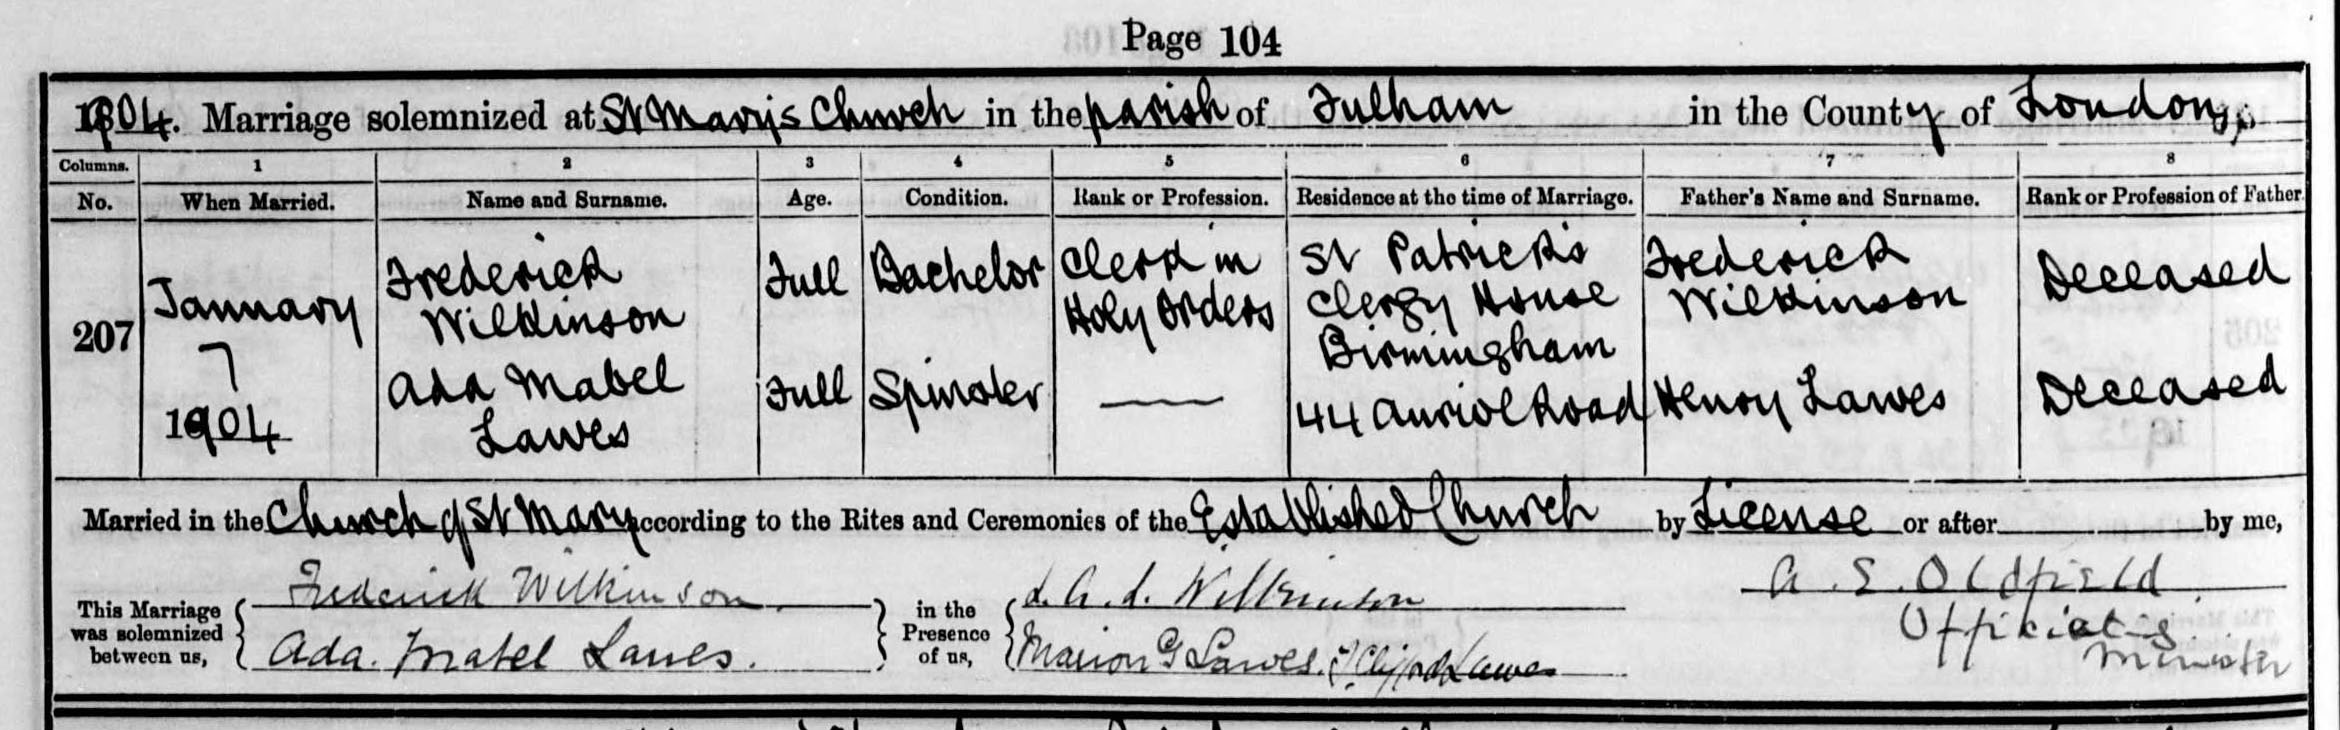 Page 104
1904. Marriage solemnized at St Mary's Church in the parish of Fulham in the County of London
Columns. 1 2 3 4 5 6 7 8
No. When Married. Name and Surname. Age. Condition. Rank or Profession. Residence at the time of Marriage. Father's Name and Surname. Rank or Profession of Father
207
January
7
1904
Frederick
Wilkinson
Full
Bachelor
Clerk in
Holy Orders
St Patrick's
Clergy House
Birmingham
Frederick
Wilkinson
Deceased
Ada Mabel
Lawes
Full
Spinster
—
44 Auriol Road
Henry Lawes
Deceased
Married in the Church of St Mary according to the Rites and Ceremonies of the Established Church by License or after by me,
This Marriage
was solemnized
between us,
Frederick Wilkinson
Ada Mabel Lawes.
in the
Presence
of us,
Wilkinson
Marion G Lawes. Clifford Lawes
A. E. Oldfield
Officiating
Minister